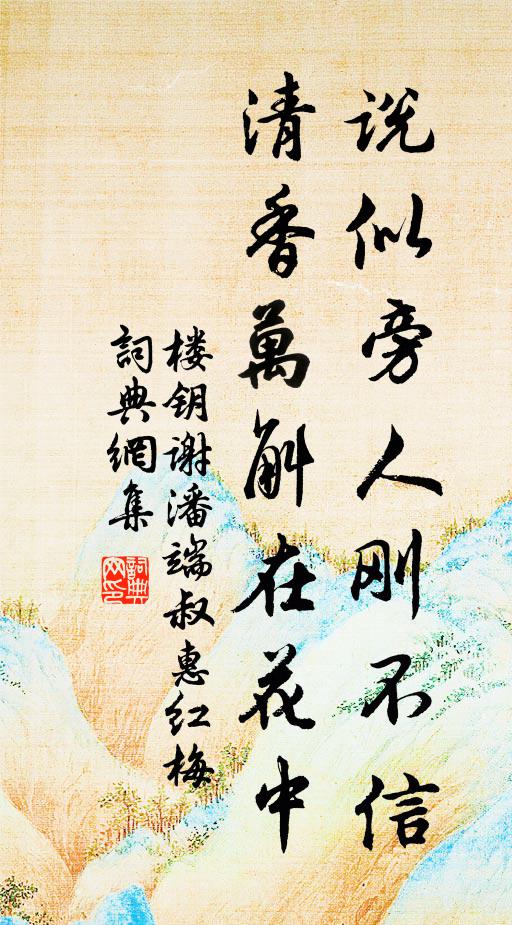 说似旁人刚不信
清香萬斛在花中
楼钥谢潘端叔惠红梅
詞典網集
詞典网印